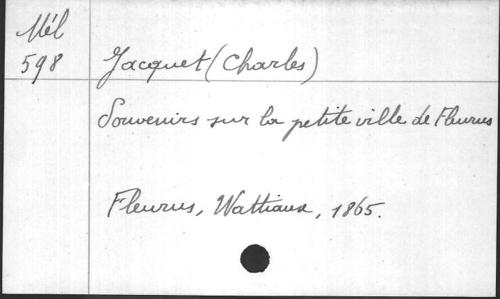 Mél
598
Jacquet (Charles)
Souvenirs sur la petite ville de Fleurus
Fleurus, Wattiaux, 1865.